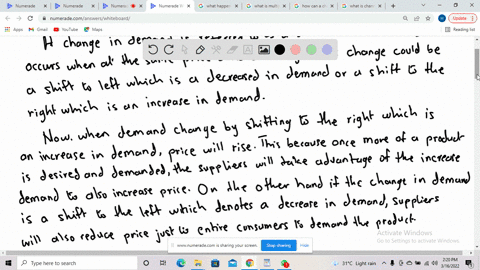 Numerade
Numerade
Numerade
Numerade
what happen
what is much
how can a cl
what is chan
numerade.com/answers/whiteboard/
Update
Apps
Gmail
YouTube
Maps
Reading list
A change in demand is
occurs when at the same
change could be
a shift to left which is a decreased in demand or a shift to the
right which is an increase in demand.
Now, when demand change by shifting to the right which is
an increase in demand, price will rise. This because once more of a product
is desired and demanded, the suppliers will take advantage of the increase
demand to also increase price. On the other hand if the change in demand
is a shift to the left which denotes a decrease in demand, suppliers
will also reduce price just to entire consumers to demand the product.
Activate Windows
Go to Settings to activate Windows.
www.numerade.com is sharing your screen.
Stop sharing
Hide
Type here to search
31°C Light rain
2:20 PM
3/16/2022